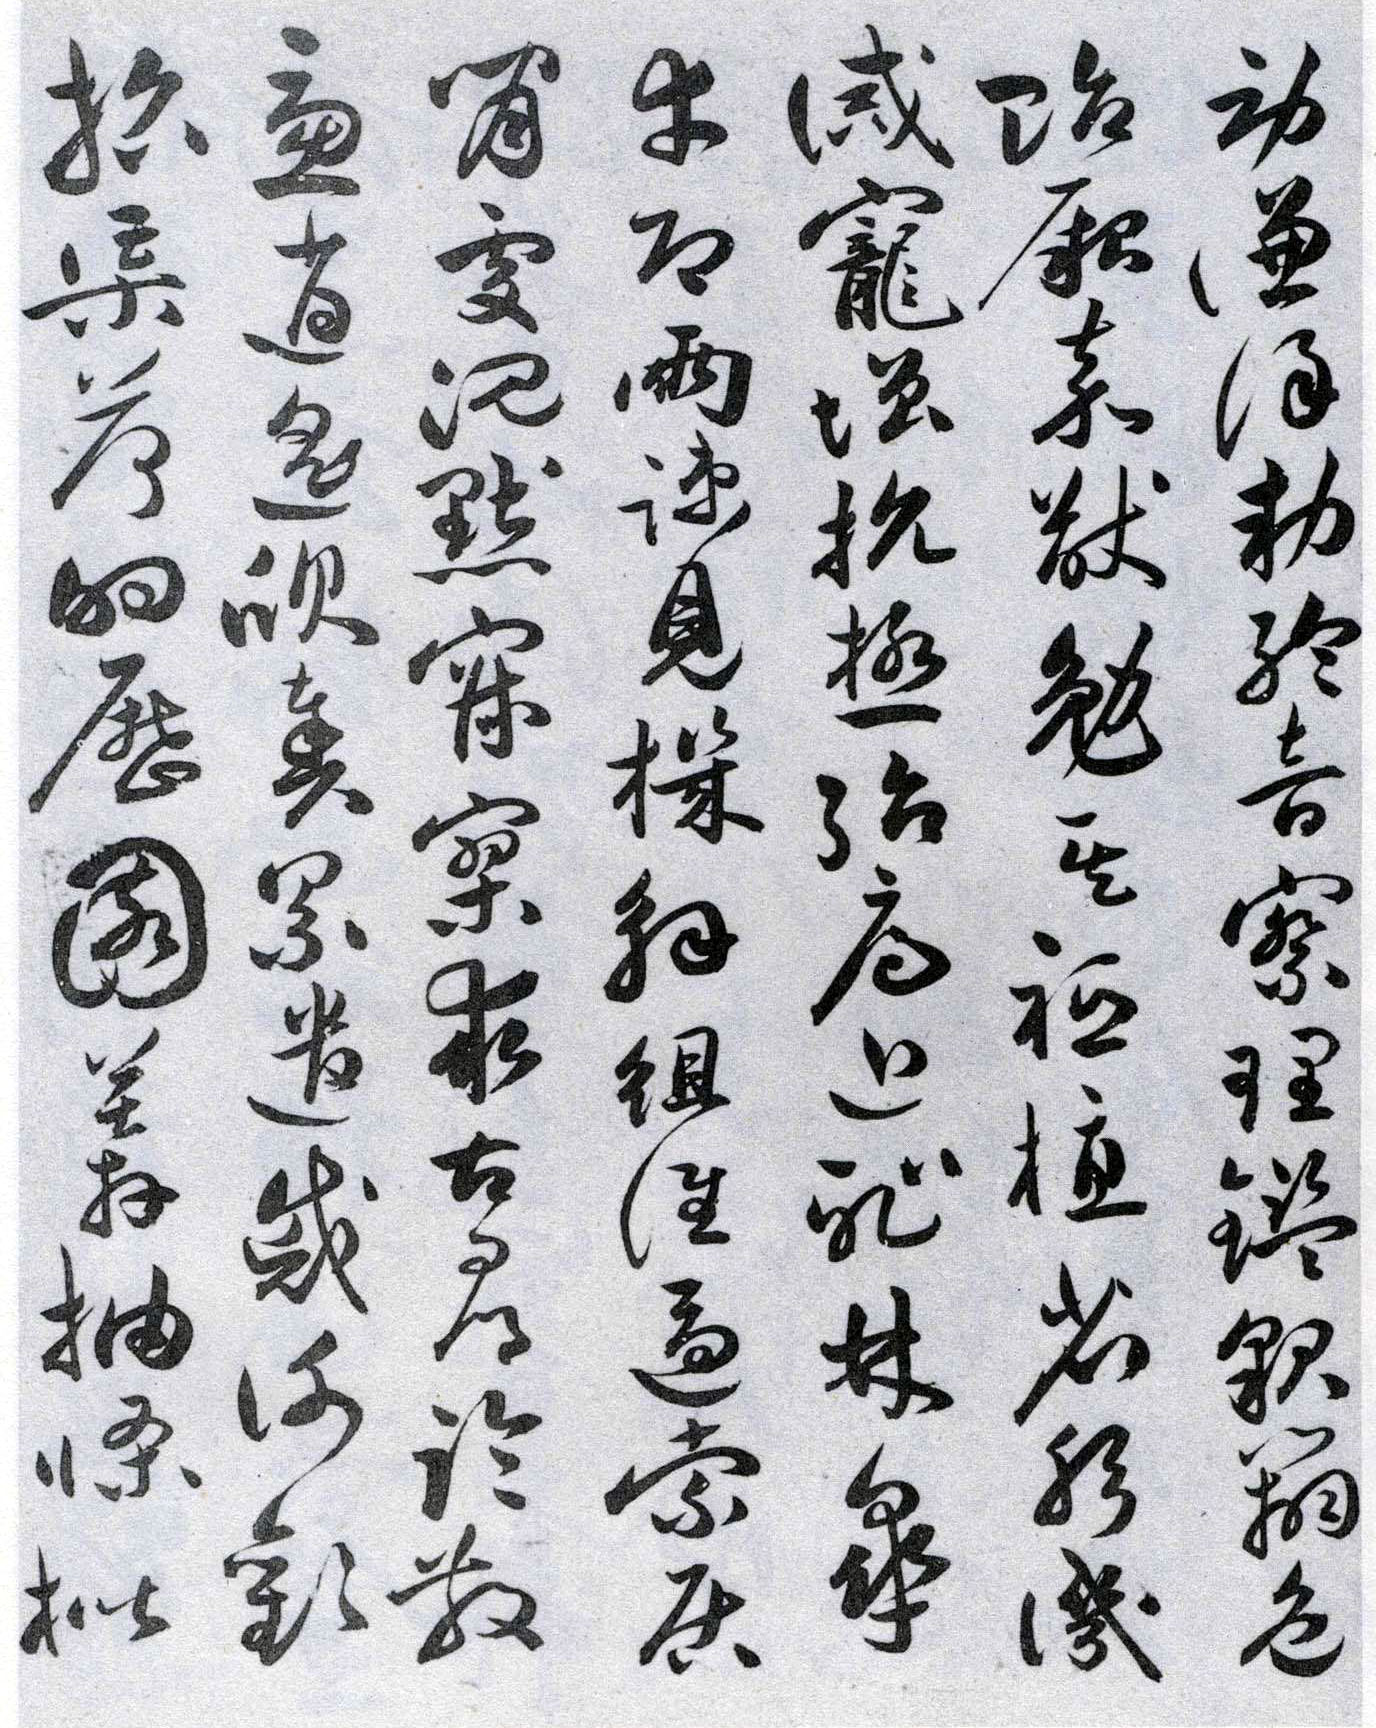 勞謙謹勑聆音察理鑑貌辨色
貽厥嘉猷勉其祗植省躬譏
誡寵增抗極殆辱近恥林皋
幸即兩疏見機解組誰逼索居
閑處沈默寂寥求古尋論散
慮逍遙欣奏累遣慼謝歡
招渠荷的歷園莽抽條枇